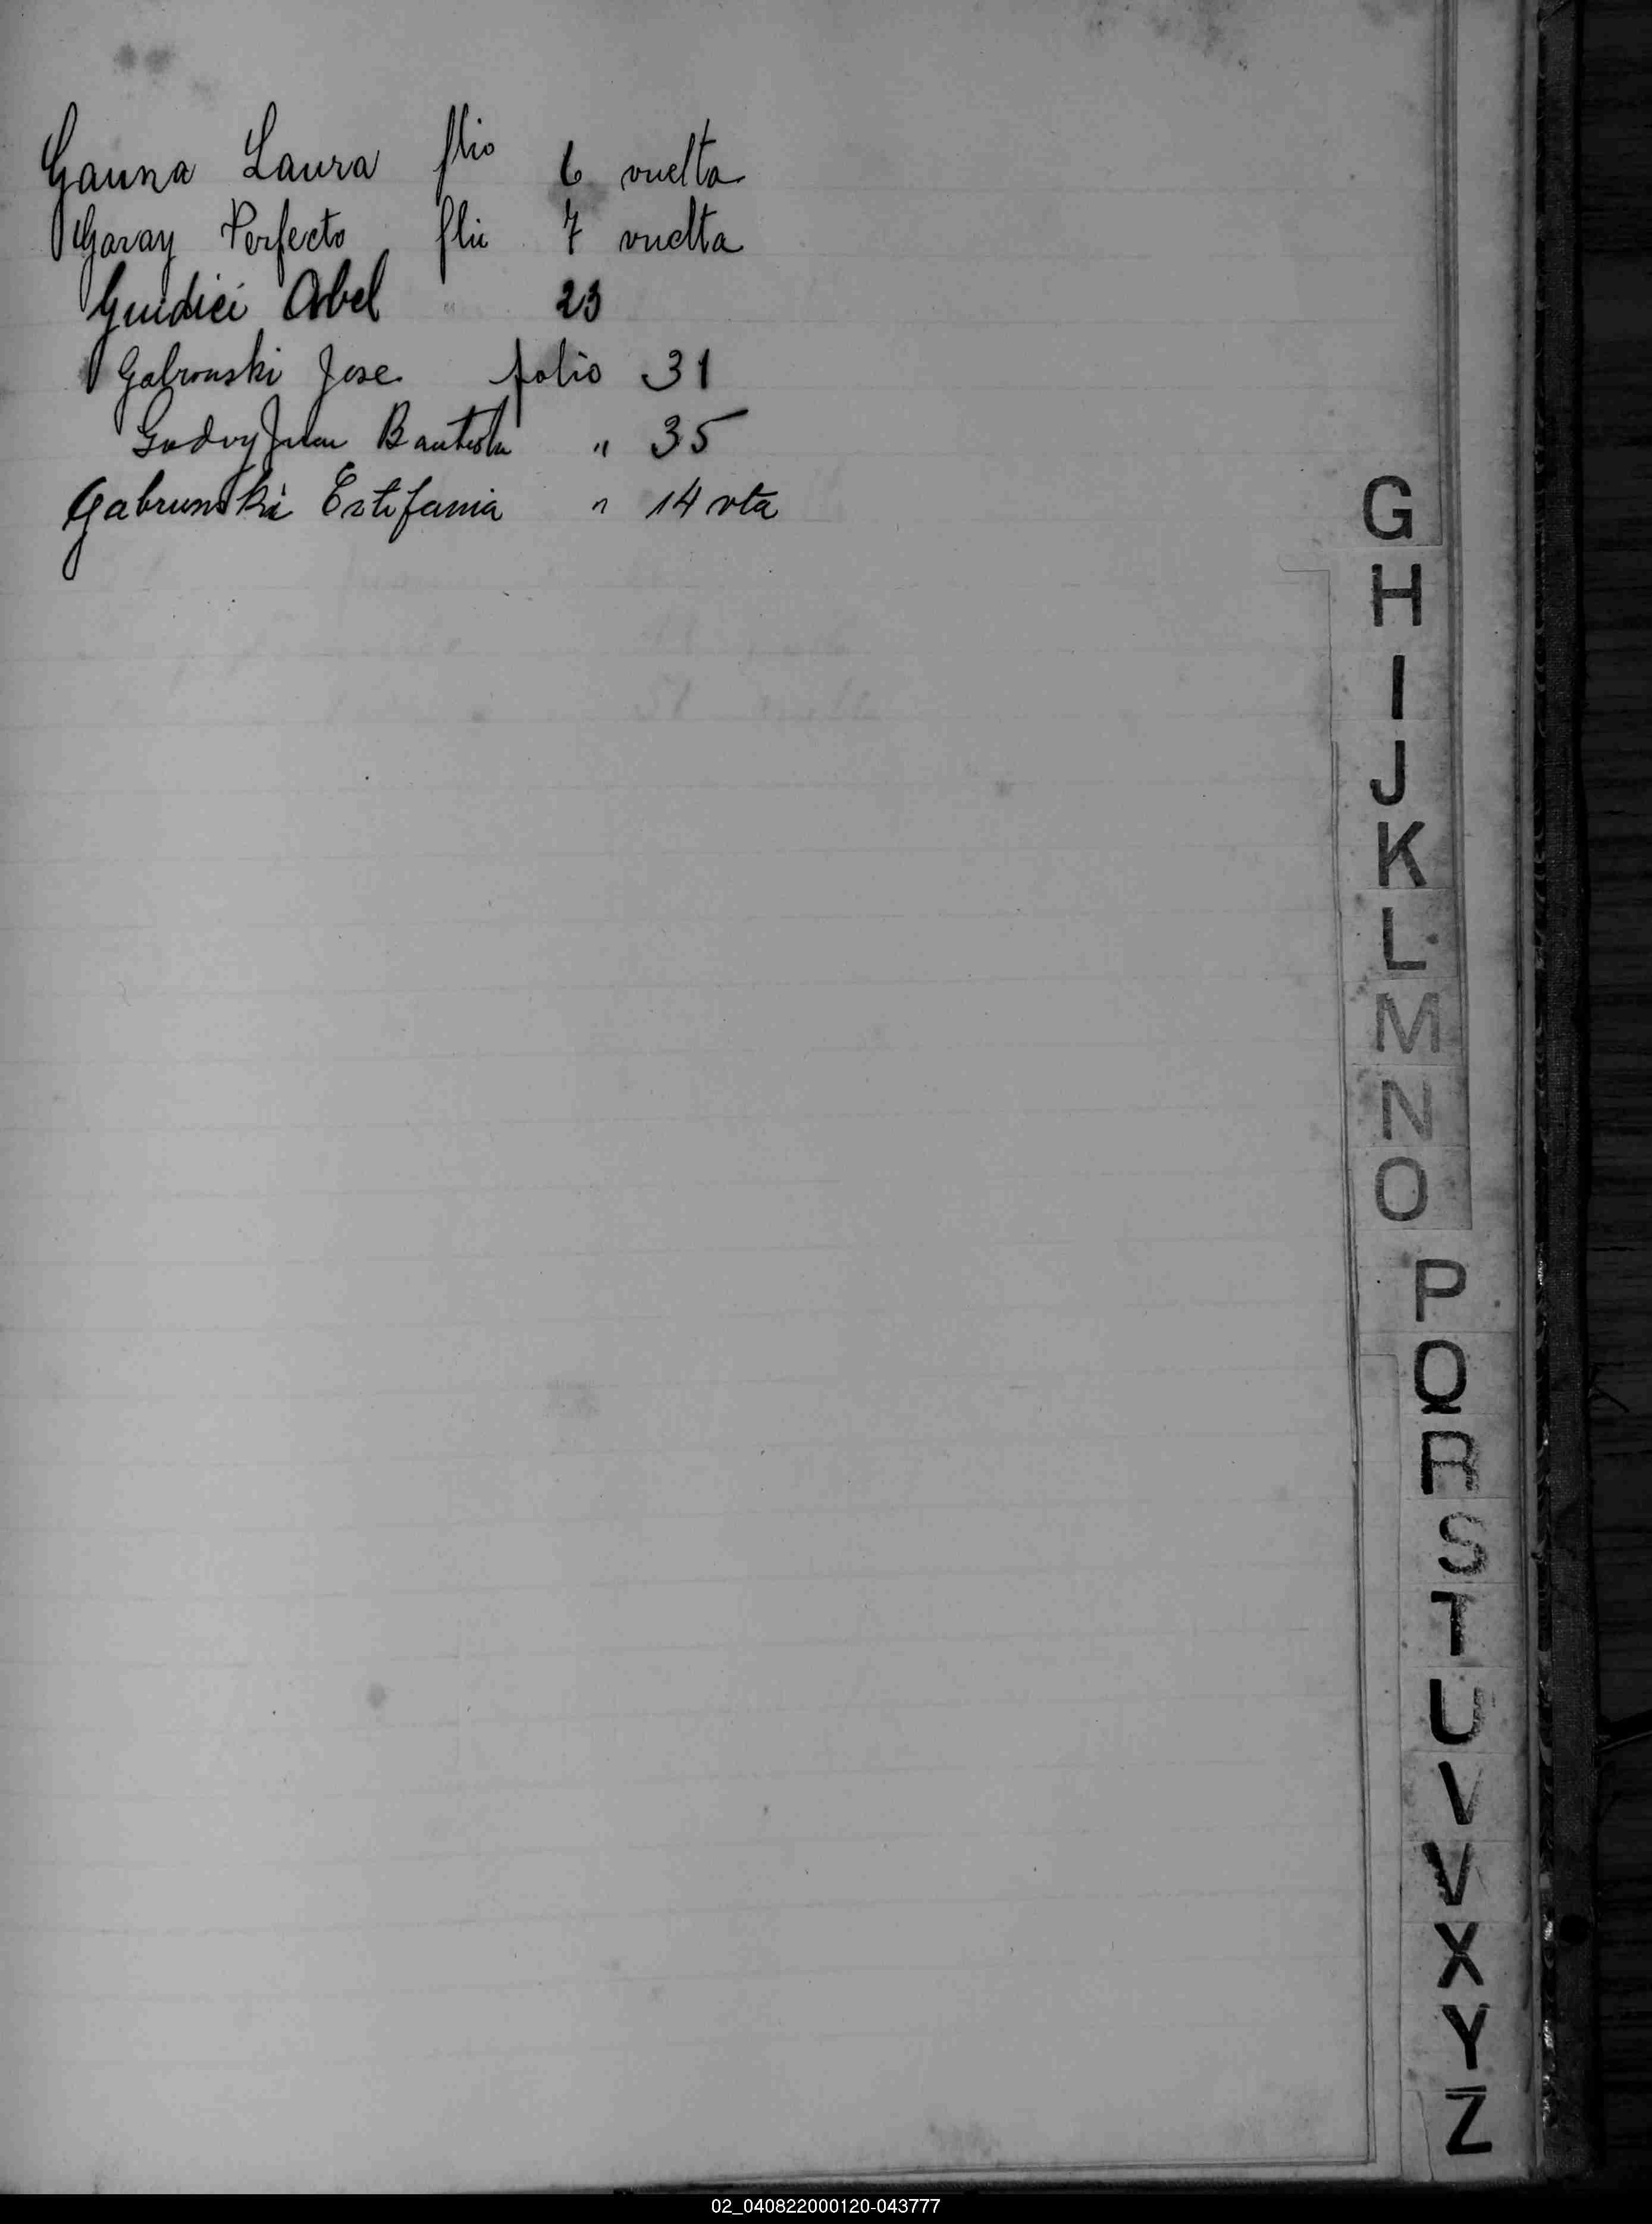 Gauna Laura flio 6 vuelta
Garay Perfecto flio 7 vuelta
Guidici Abel " 23
Gabronski Jose folio 31
Godoy Juan Bautista " 35
Gabrunski Estifania " 14 vta
G
H
I
J
K
L
M
N
O
P
Q
R
S
T
U
V
V
X
Y
Z
02_040822000120-043777